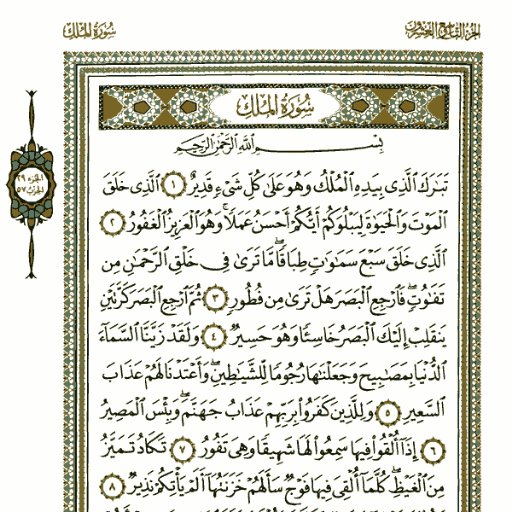 الجزء التاسع والعشرون
سُورَةُ المُلْكِ
سُورَةُ المُلْكِ
بِسْمِ اللَّهِ الرَّحْمَٰنِ الرَّحِيمِ
الجزء ٢٩
الحزب ٥٧
تَبَٰرَكَ ٱلَّذِى بِيَدِهِ ٱلْمُلْكُ وَهُوَ عَلَىٰ كُلِّ شَىْءٍ قَدِيرٌ ١ ٱلَّذِى خَلَقَ
ٱلْمَوْتَ وَٱلْحَيَوٰةَ لِيَبْلُوَكُمْ أَيُّكُمْ أَحْسَنُ عَمَلًا ۚ وَهُوَ ٱلْعَزِيزُ ٱلْغَفُورُ ٢
ٱلَّذِى خَلَقَ سَبْعَ سَمَٰوَٰتٍ طِبَاقًا ۖ مَّا تَرَىٰ فِى خَلْقِ ٱلرَّحْمَٰنِ مِن
تَفَٰوُتٍ ۖ فَٱرْجِعِ ٱلْبَصَرَ هَلْ تَرَىٰ مِن فُطُورٍ ٣ ثُمَّ ٱرْجِعِ ٱلْبَصَرَ كَرَّتَيْنِ
يَنقَلِبْ إِلَيْكَ ٱلْبَصَرُ خَاسِئًا وَهُوَ حَسِيرٌ ٤ وَلَقَدْ زَيَّنَّا ٱلسَّمَآءَ
ٱلدُّنْيَا بِمَصَٰبِيحَ وَجَعَلْنَٰهَا رُجُومًا لِّلشَّيَٰطِينِ ۖ وَأَعْتَدْنَا لَهُمْ عَذَابَ
ٱلسَّعِيرِ ٥ وَلِلَّذِينَ كَفَرُوا۟ بِرَبِّهِمْ عَذَابُ جَهَنَّمَ ۖ وَبِئْسَ ٱلْمَصِيرُ
٦ إِذَآ أُلْقُوا۟ فِيهَا سَمِعُوا۟ لَهَا شَهِيقًا وَهِىَ تَفُورُ ٧ تَكَادُ تَمَيَّزُ
مِنَ ٱلْغَيْظِ ۖ كُلَّمَآ أُلْقِىَ فِيهَا فَوْجٌ سَأَلَهُمْ خَزَنَتُهَآ أَلَمْ يَأْتِكُمْ نَذِيرٌ ٨